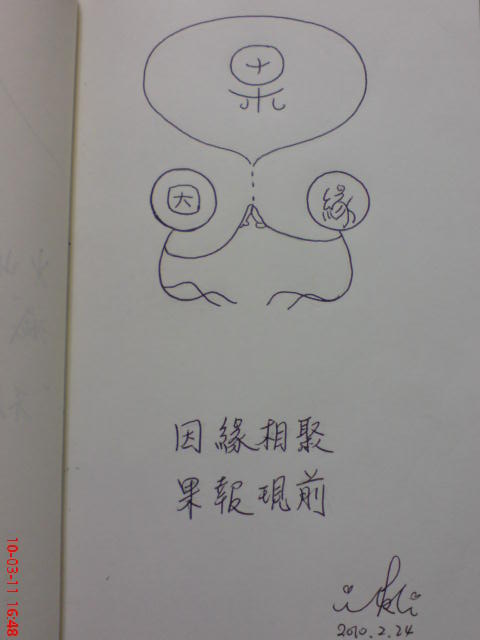 果
因
緣
因緣相聚
果報現前
2010.2.24
10-03-11 16:48